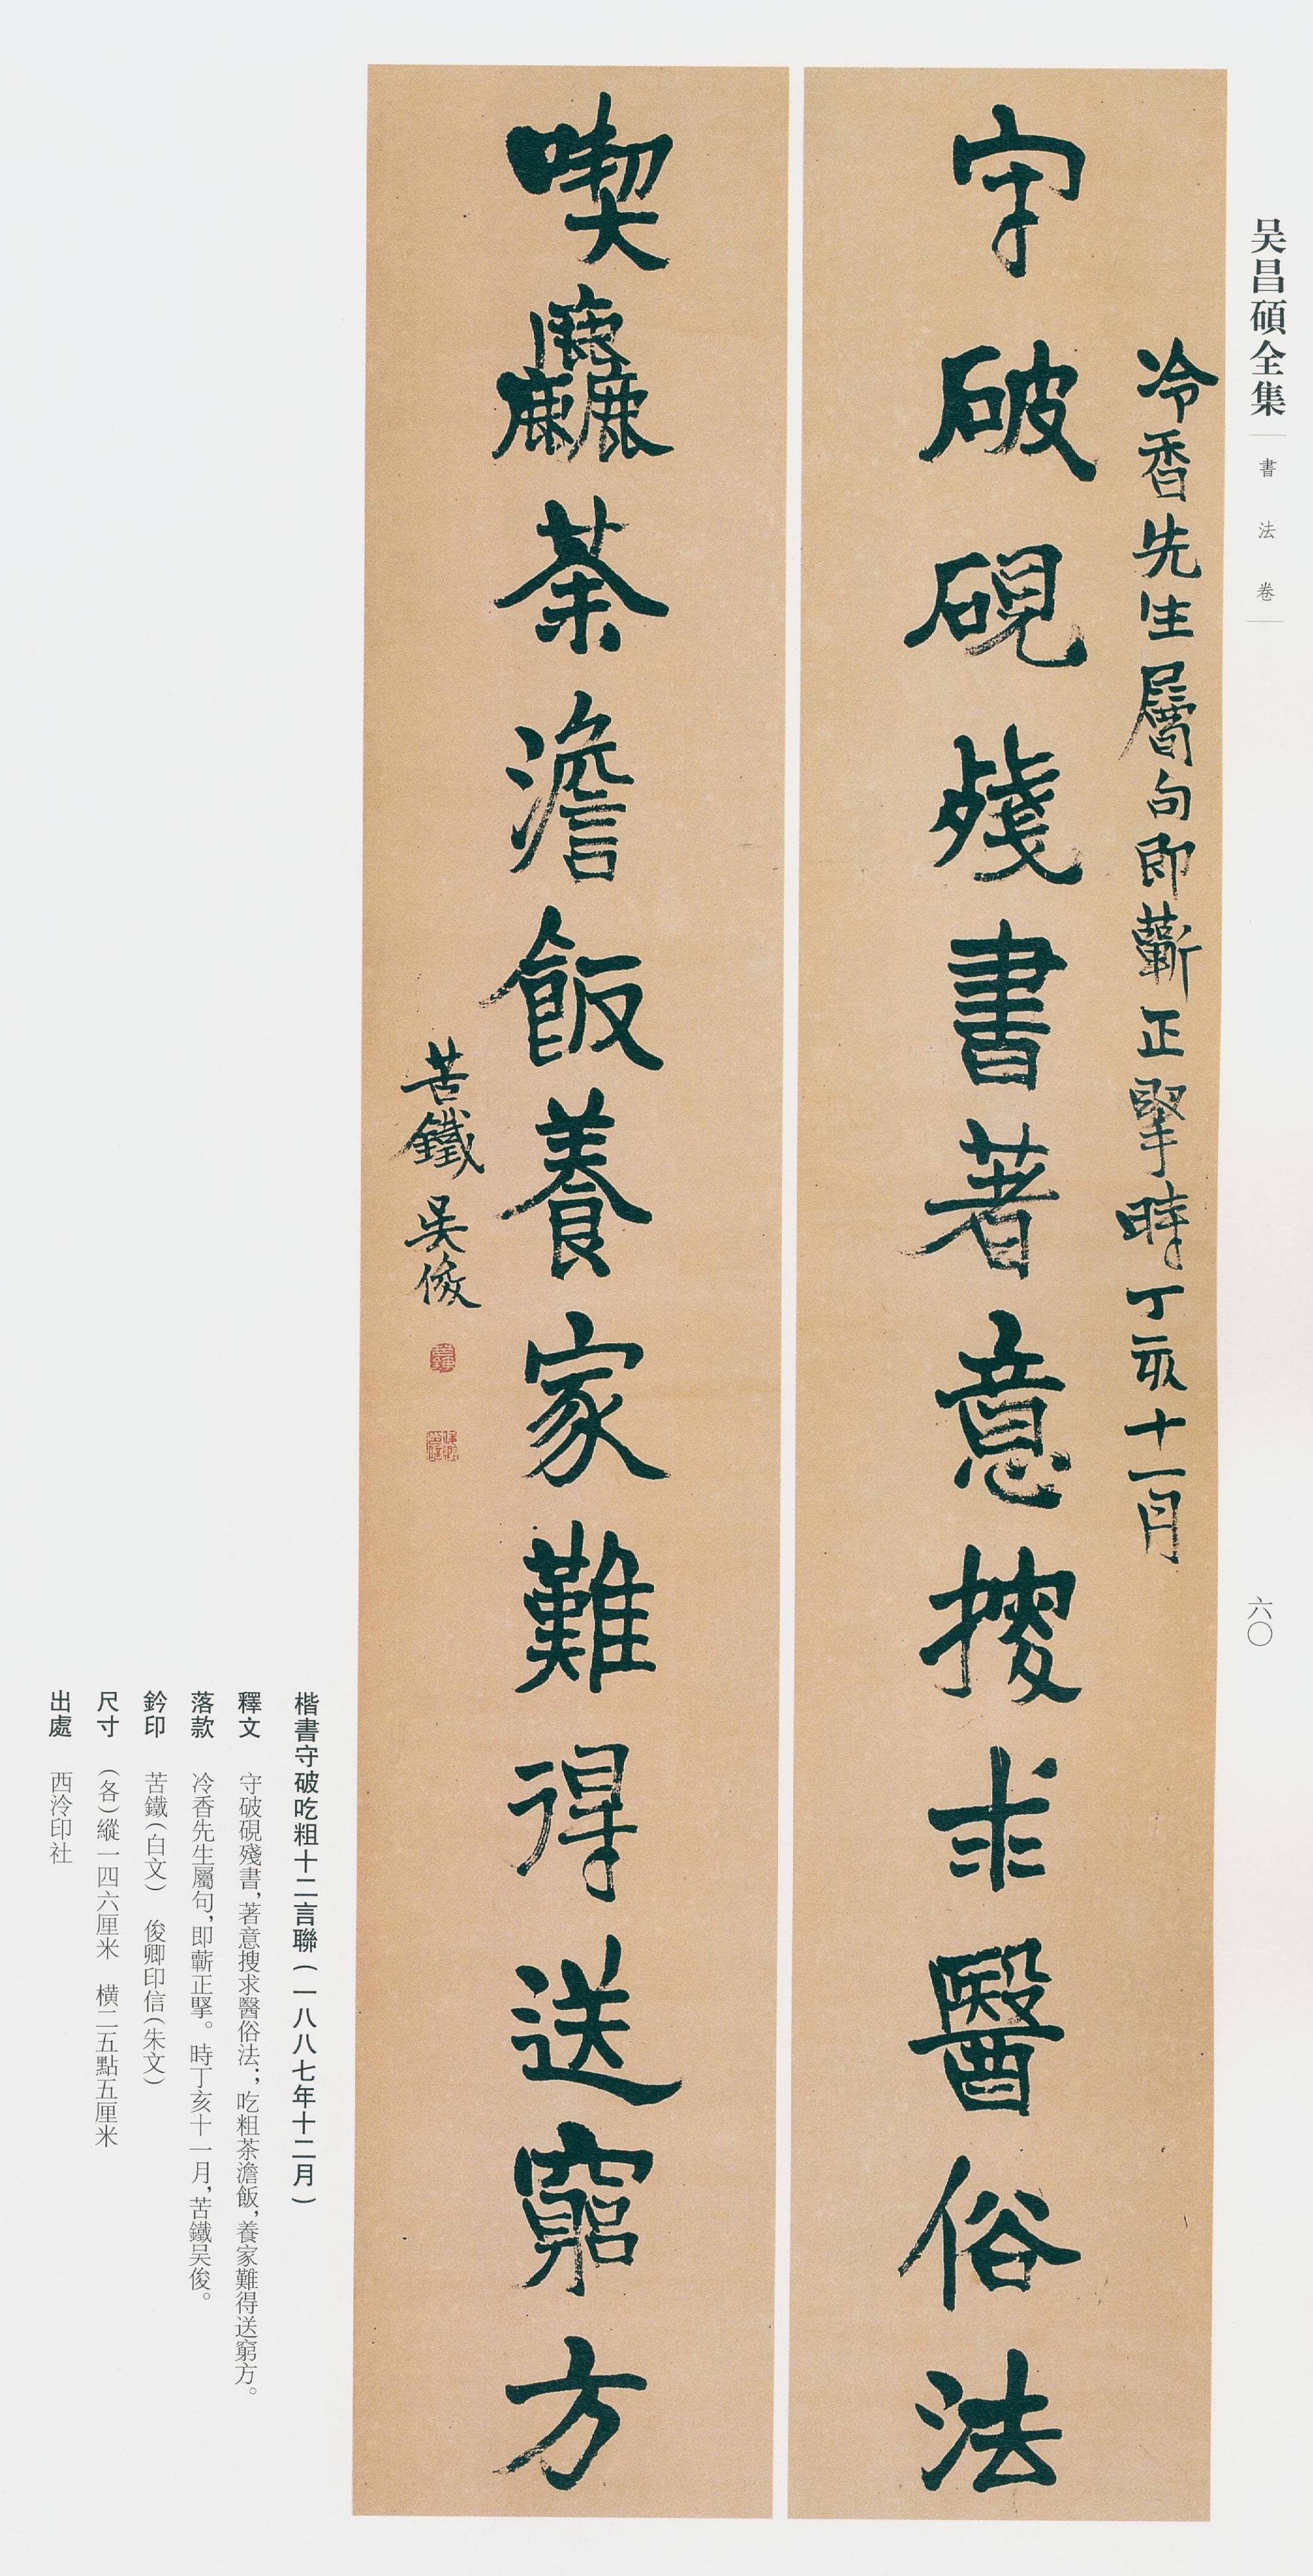 吴昌碩全集
書法卷
六〇
冷香先生屬句即蘄正掔時丁亥十一月
守破硯殘書著意搜求醫俗法
喫麤茶澹飯養家難得送窮方
苦鐵吳俊
楷書守破吃粗十二言聯(一八八七年十二月)
釋文 守破硯殘書,著意搜求醫俗法;吃粗茶澹飯,養家難得送窮方。
落款 冷香先生屬句,即蘄正掔。時丁亥十一月,苦鐵吴俊。
鈐印 苦鐵(白文) 俊卿印信(朱文)
尺寸 (各)縱一四六厘米 橫二五點五厘米
出處 西泠印社